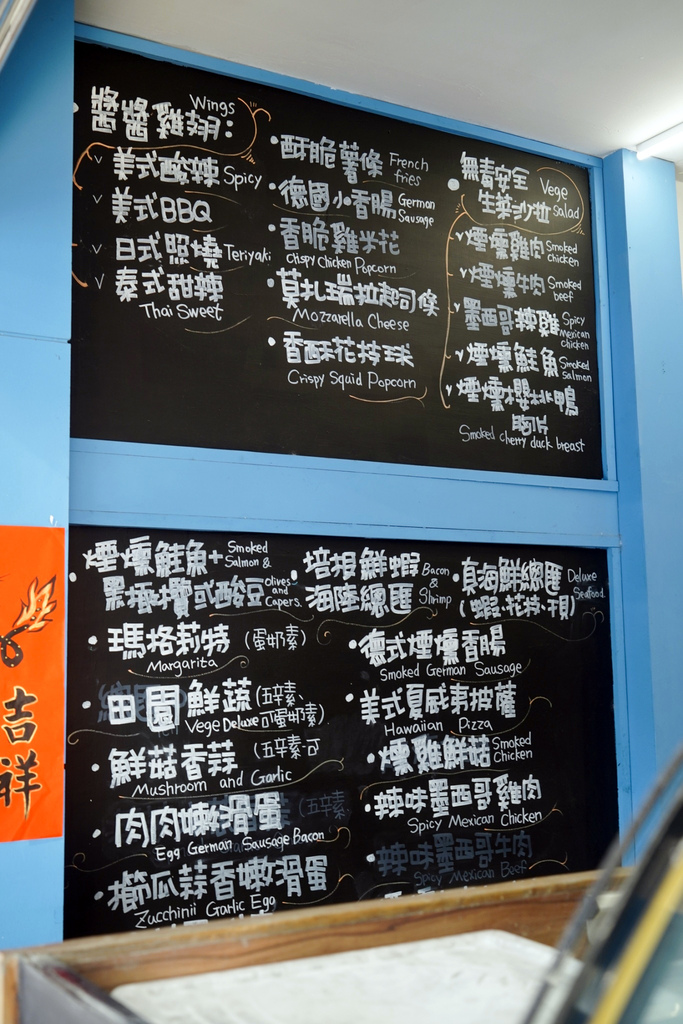 醬醬雞翅: Wings
美式酸辣 Spicy
美式BBQ
日式照燒 Teriyaki
泰式甜辣
Thai Sweet
酥脆薯條 French fries
德國小香腸 German Sausage
香脆雞米花
Crispy Chicken Popcorn
莫扎瑞拉起司條
Mozzarella Cheese
香酥花枝球
Crispy Squid Popcorn
無毒安全
生菜沙拉 Vege Salad
煙燻雞肉 Smoked chicken
煙燻牛肉 Smoked beef
墨西哥辣雞 Spicy Mexican chicken
煙燻鮭魚 Smoked salmon
煙燻櫻桃鴨
胸片
Smoked cherry duck breast
煙燻鮭魚+ Smoked Salmon &
黑橄欖或酸豆 Olives and Capers.
瑪格莉特 (蛋奶素)
Margarita
田園鮮蔬 (五辛素、
Vege Deluxe 可蛋奶素)
鮮菇香蒜 (五辛素可
Mushroom and Garlic
肉肉嫩滑蛋 (五辛素
Egg German Sausage Bacon
櫛瓜蒜香嫩滑蛋
Zucchinii Garlic Egg
培根鮮蝦 Bacon
海陸總匯 & Shrimp
真海鮮總匯 Deluxe
(蝦·花枝·干貝) Seafood.
德式煙燻香腸
Smoked German Sausage
美式夏威夷披薩
Hawaiian Pizza
燻雞鮮菇 Smoked Chicken
辣味墨西哥雞肉
Spicy Mexican Chicken
辣味墨西哥牛肉
Spicy Mexican Beef
吉
祥